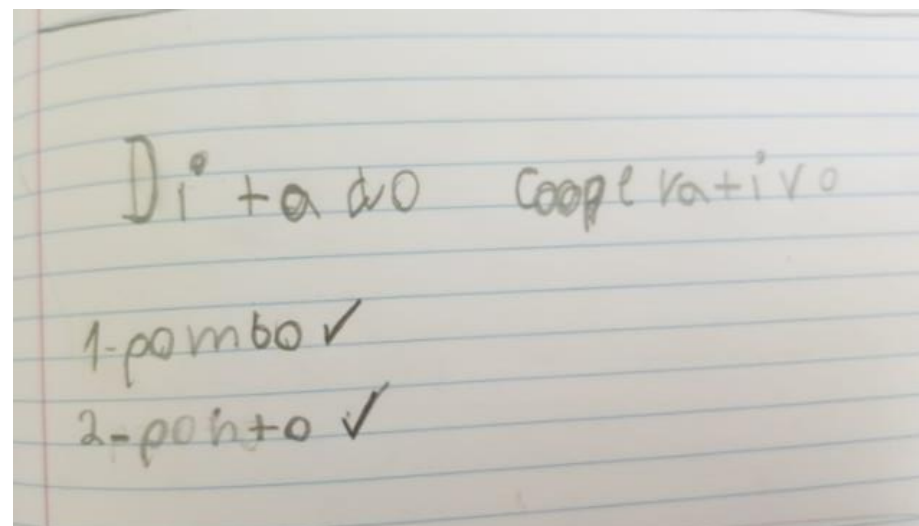 Ditado cooperativo
1-pombo ✓
2-ponto ✓